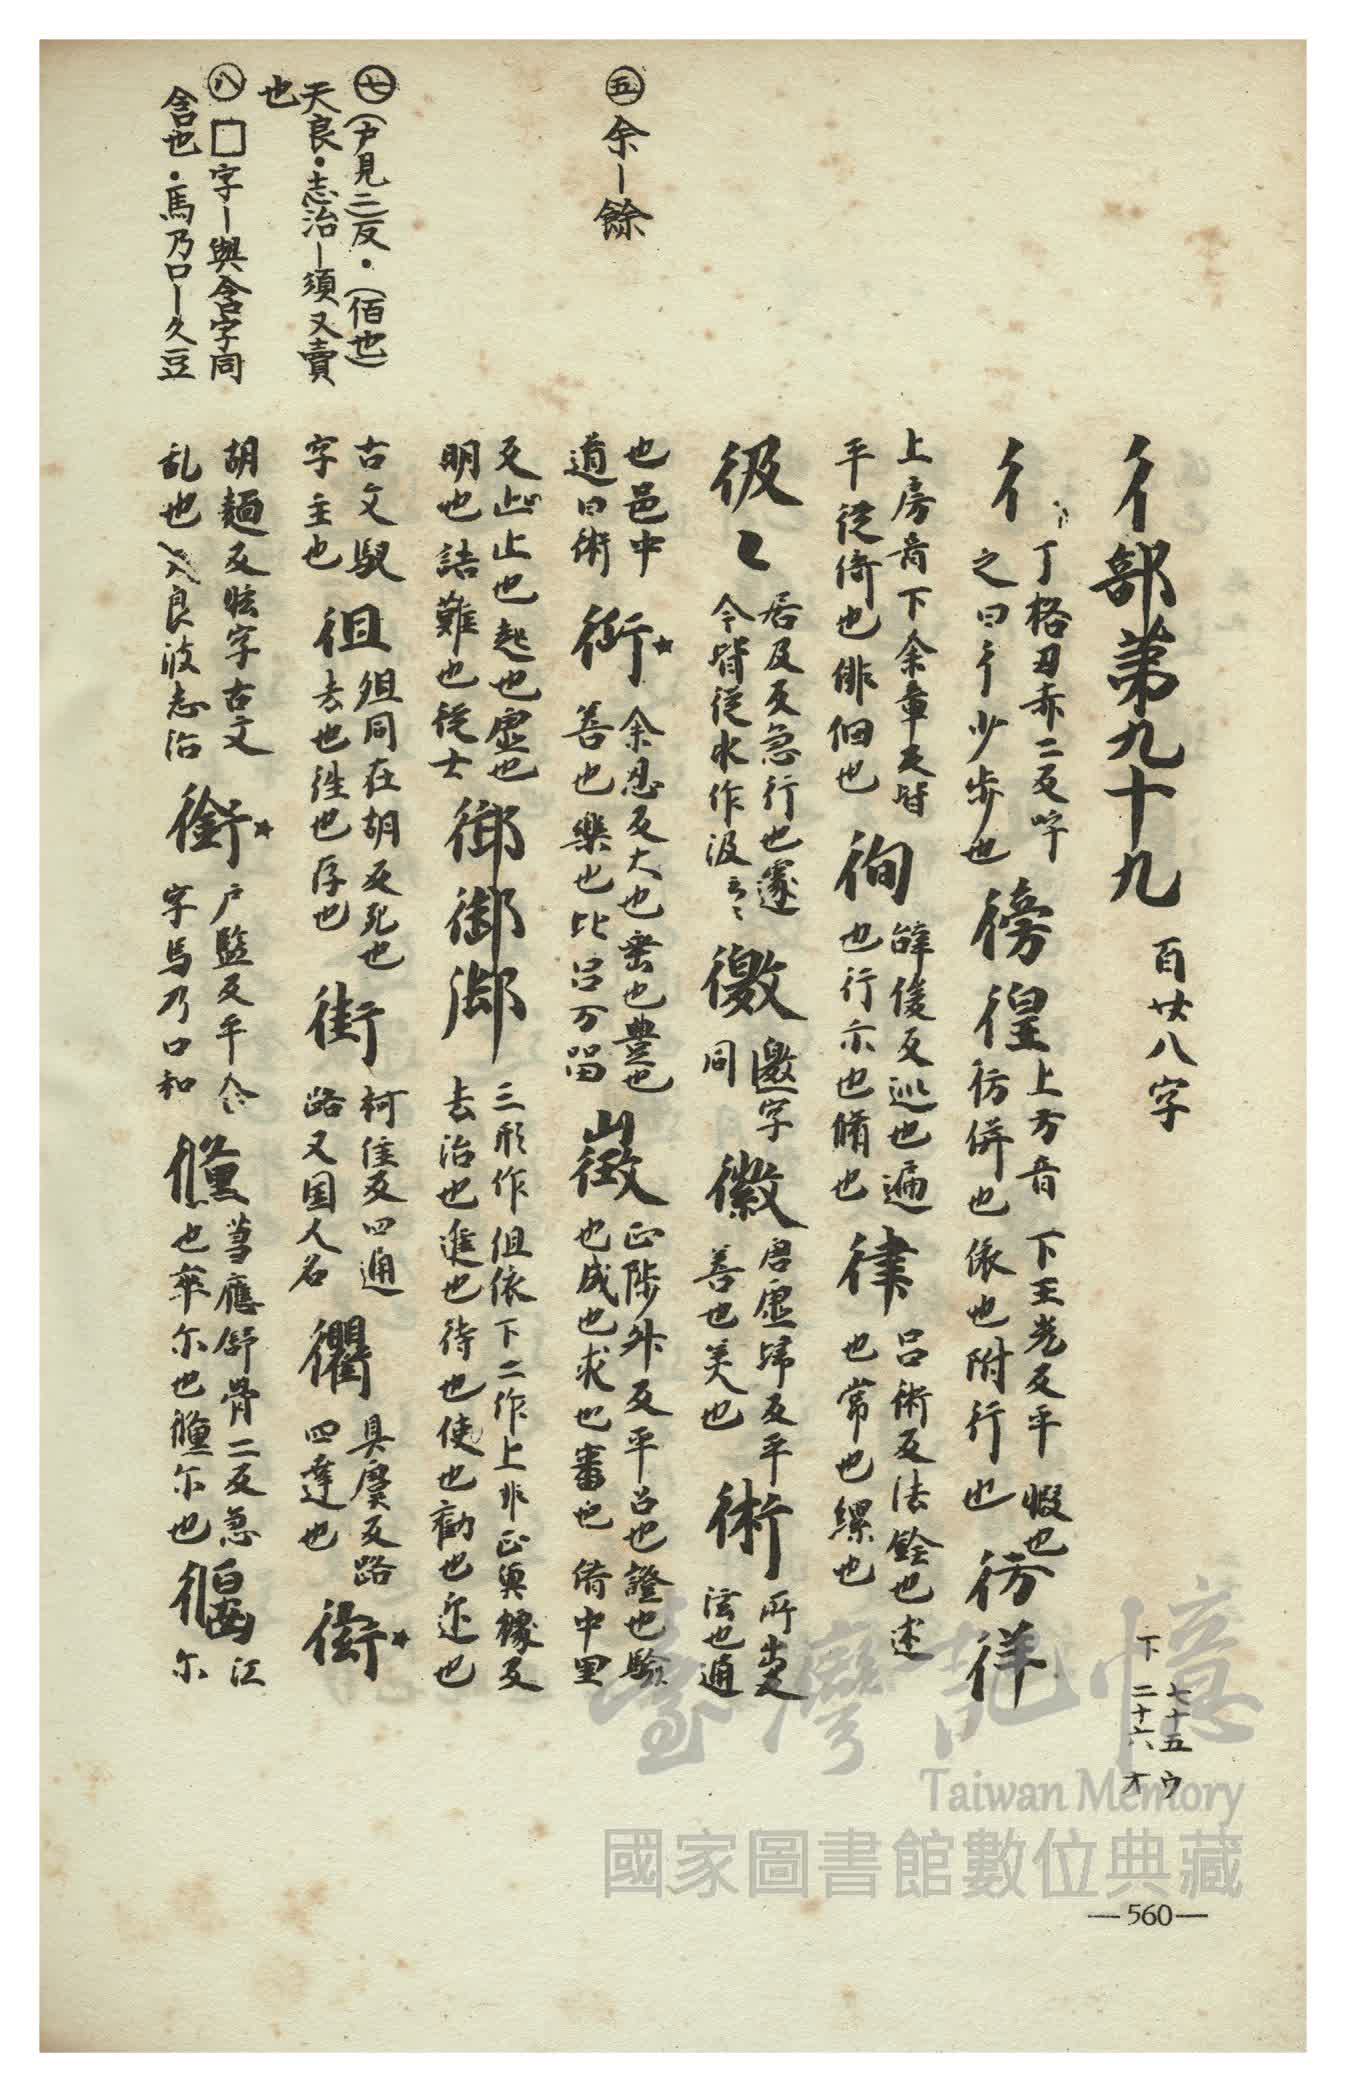 彳部第九十九 百廿八字
下 七十五ウ
二十六オ
彳 丁格丑赤二反吁
之曰彳少步也
徬徨 上方音 下王光反平 暇也
彷併也依也附行也
彷徉
上房音下余章反皆
平従倚也俳佪也
徇 辥俊反巡也遍
也行示也脩也
律 呂術反法銓也述
也常也縲也
彶々 居及反急行也遽
今皆従水作汲々
徼 邀字
同
徽 居虛歸反平
善也美也
術 所出反
法也通
也邑中
道曰術
衍 余忍反大也垂也豊也
善也樂也比呂万留
徵 正陟升反平召也證也驗
也成也求也審也 脩中里
反止也起也虛也
明也詰難也従士
御御 三形作但依下二作上非正 魚據反
去治也進也待也使也勸也迎也
古文馭
字主也
徂 殂同在胡反死也
去也往也存也
街 柯佳反四通
路又国人名
衢 具虞反路
四達也
衒
胡麺反眩字古文
亂也 天良波志治
銜 戶監反平含
字馬乃口和
也率尓也 尓也
江
尓
五 余ー餘
七 (戶見二反・(佰也)
天良・志治ー須又賣
也
八 □字ー與含字同
含也・馬乃口ー久豆
—560—
臺灣記憶
Taiwan Memory
國家圖書館數位典藏